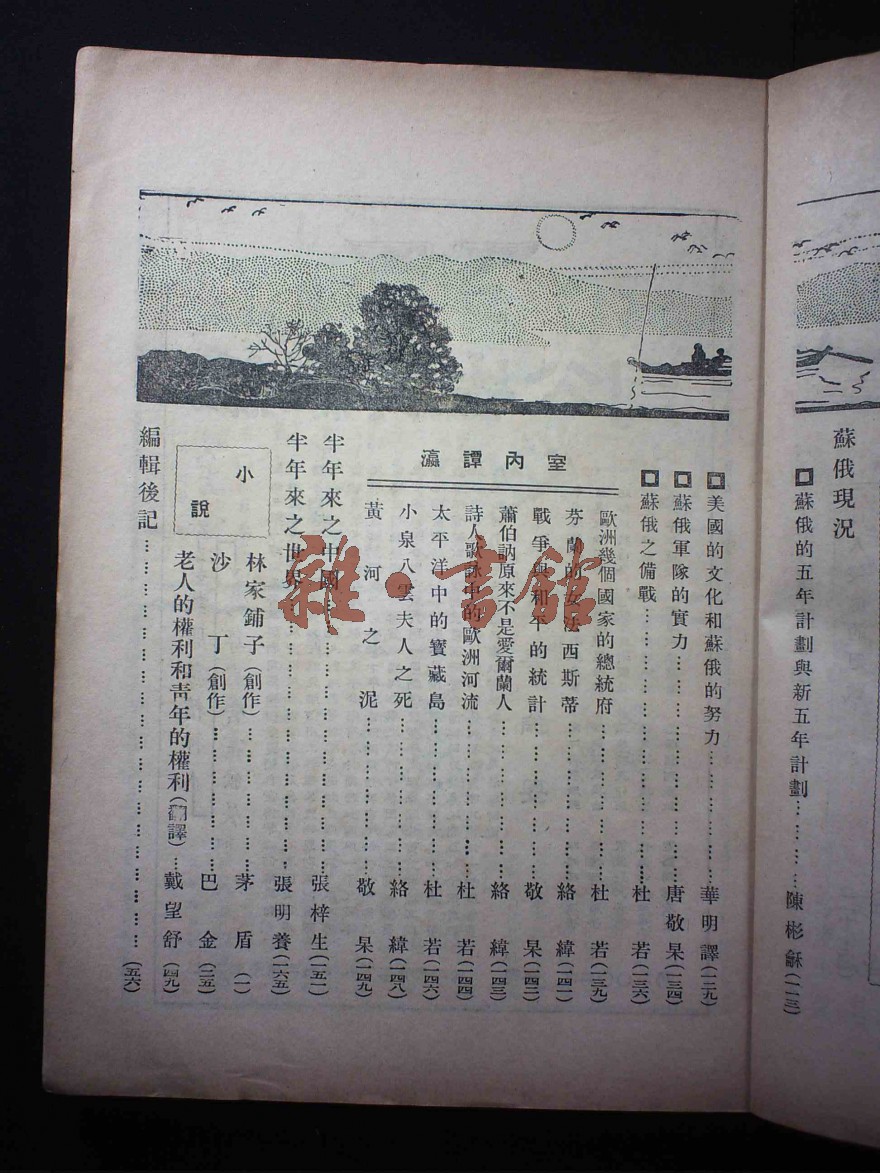 蘇俄現況
蘇俄的五年計劃與新五年計劃…………陳彬龢(一一三)
美國的文化和蘇俄的努力…………華明譯(一二九)
蘇俄軍隊的實力…………唐敬杲(一三四)
蘇俄之備戰…………杜若(一三六)
室內譚瀛
歐洲幾個國家的總統府…………杜若(一三九)
芬蘭的女法西斯蒂…………絡緯(一四一)
戰爭與和平的統計…………敬杲(一四二)
蕭伯訥原來不是愛爾蘭人…………絡緯(一四三)
詩人歌詠中的歐洲河流…………杜若(一四四)
太平洋中的寶藏島…………杜若(一四六)
小泉八雲夫人之死…………絡緯(一四八)
黃河之泥…………敬杲(一四九)
半年來之中國…………張梓生(一五一)
半年來之世界…………張明養(一六五)
小說
林家鋪子(創作)…………茅盾(一)
沙丁(創作)…………巴金(二五)
老人的權利和青年的權利(翻譯)…戴望舒(四九)
編輯後記…………(五六)
雜·書館